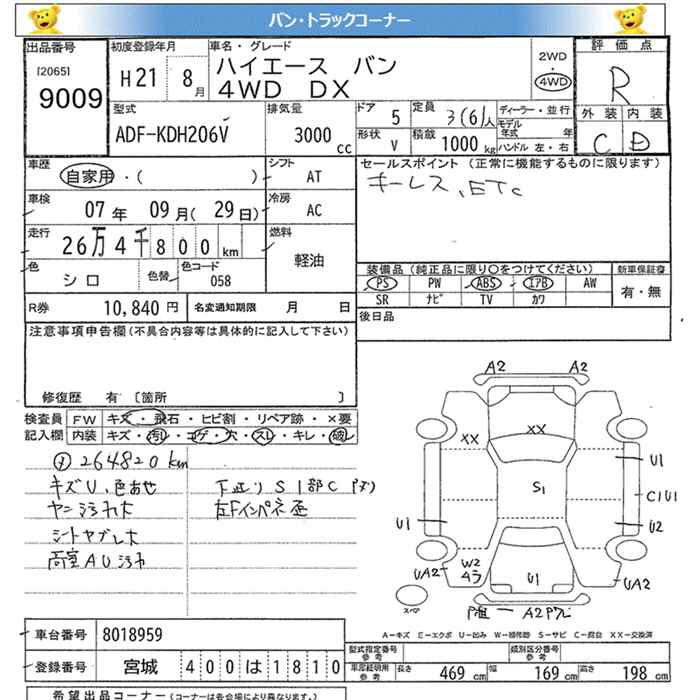 バン・トラックコーナー
出品番号
[2065]
9009
初度登録年月
H21 8月
車名・グレード
ハイエース バン
4WD DX
2WD
4WD
評価点
R
外装 内装
C D
型式
ADF-KDH206V
排気量
3000 cc
ドア 5
定員 3(6)人
形状 V
積載 1000 kg
ディーラー・並行
モデル年式 年
ハンドル 左・右
車歴
自家用・( )
シフト AT
車検
07年 09月(29日)
冷房 AC
走行
26万4千800km
燃料 軽油
色 シロ
色替
色コード 058
R券 10,840円
名変通知期限 月 日
セールスポイント (正常に機能するものに限ります)
キーレス、ETC
装備品 (純正品に限り○をつけてください)
新車保証書
PS PW ABS エアB AW
有・無
SR ナビ TV カワ
後日品
注意事項申告欄(不具合内容等は具体的に記入して下さい)
修復歴 有〔箇所 〕
検査員記入欄
FW キズ・飛石・ヒビ割・リペア跡・×要
内装 キズ・汚レ・コゲ・穴・スレ・キレ・破レ
264820km
キズU、色あせ
ヤニ汚れ大
シートヤブレ大
荷室AU汚れ
下廻りS1部C
左Fインパネ歪
A2 A2
XX XX
S1
U1
C1U1
U1 U2
UA2 W2 U1 UA2
スペア
A2
A-キズ E-エクボ U-凹み W-補修跡 S-サビ C-腐食 XX-交換済
車台番号 8018959
登録番号 宮城 400は1810
型式指定番号 参考
類別区分番号 参考
車庫証明用 参考
長さ 469cm 幅 169cm 高さ 198cm
希望出品コーナー(コーナーは各会場により異なります)